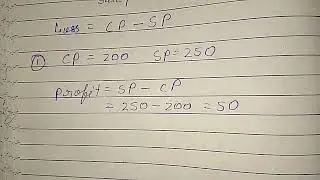 Loss = CP - SP
① CP = 200 SP = 250
Profit = SP - CP
= 250 - 200 = 50